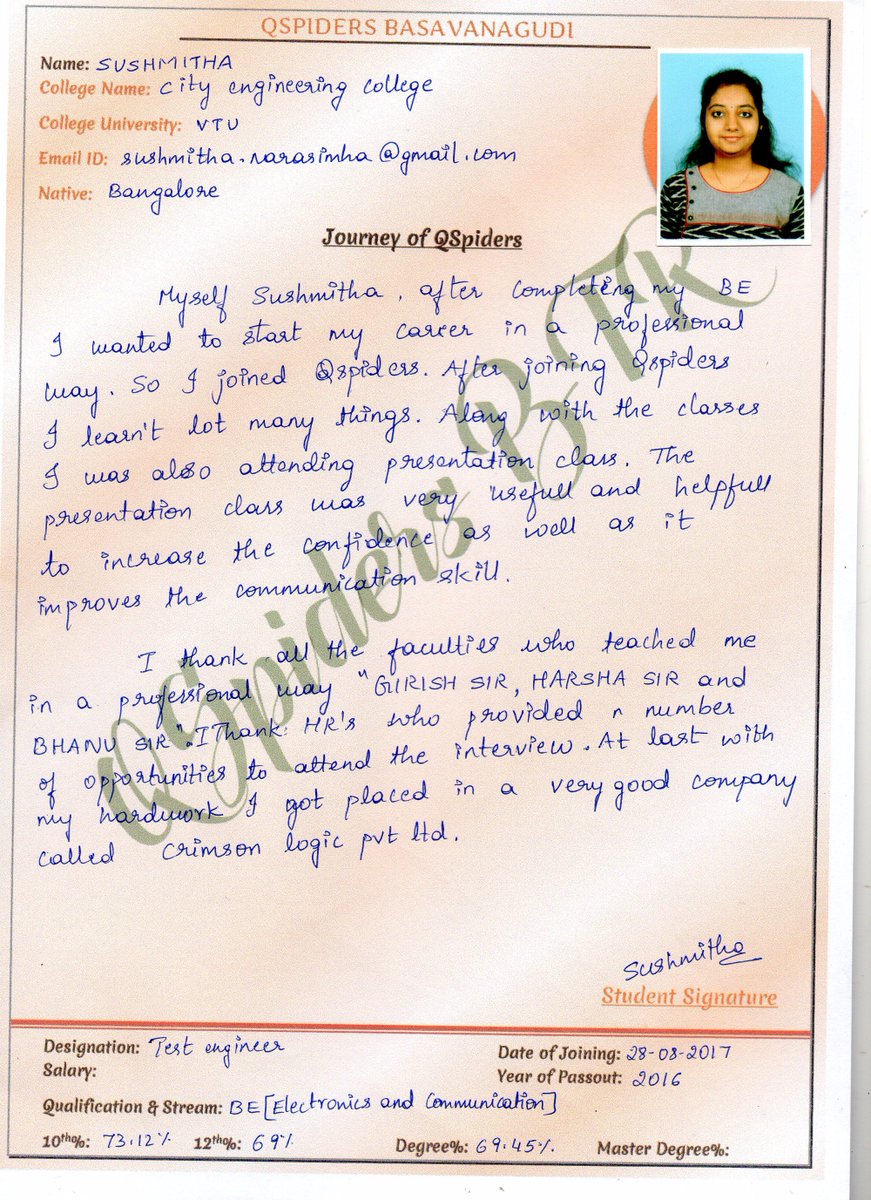 QSPIDERS BASAVANAGUDI
Name: SUSHMITHA
College Name: City engineering college
College University: VTU
Email ID: sushmitha.narasimha@gmail.com
Native: Bangalore
Journey of QSpiders
Myself Sushmitha, after completing my BE
I wanted to start my career in a professional
way. So I joined Qspiders. After joining Qspiders
I learn't lot many things. Along with the classes
I was also attending presentation class. The
presentation class was very usefull and helpfull
to increase the confidence as well as it
improves the communication skill.
I thank all the faculties who teached me
in a professional way "GIRISH SIR, HARSHA SIR and
BHANU SIR". I Thank HR's who provided n number
of opportunities to attend the interview. At last with
my hardwork I got placed in a very good company
called crimson logic pvt ltd.
QSpiders BTR
Sushmitha
Student Signature
Designation: Test engineer
Date of Joining: 28-08-2017
Salary:
Year of Passout: 2016
Qualification & Stream: BE [Electronics and Communication]
10th%: 73.12% 12th%: 69% Degree%: 69.45% Master Degree%: